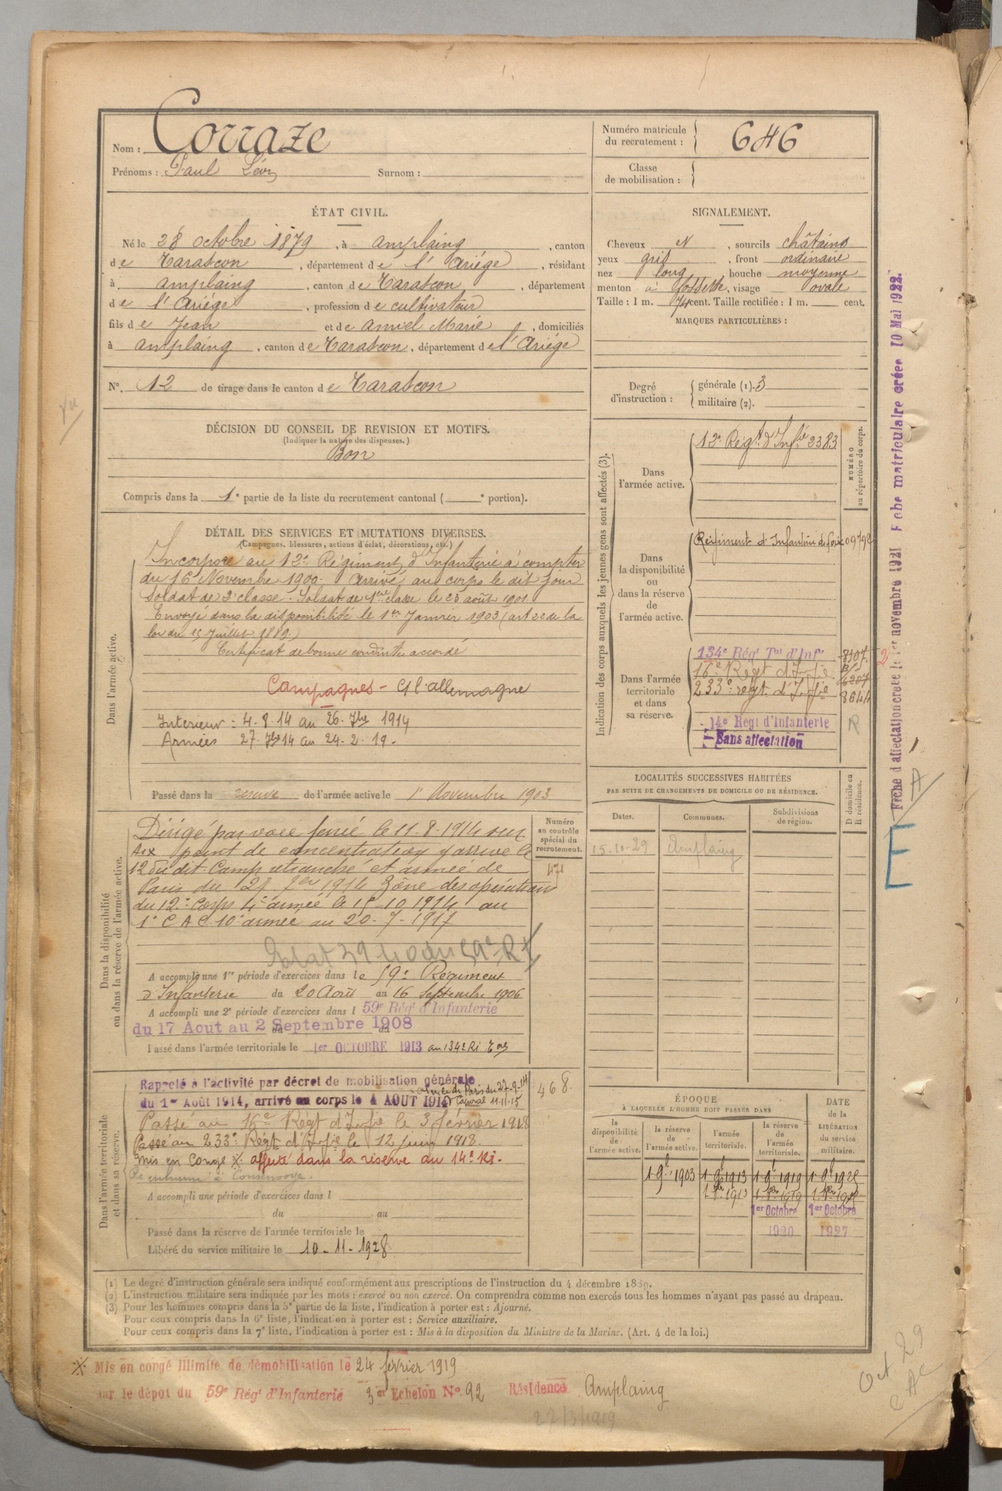 Nom : Corraze
Prénoms : Paul Léon Surnom :
Numéro matricule du recrutement : 646
Classe de mobilisation :
ÉTAT CIVIL.
Né le 28 octobre 1879, à Amplaing, canton
de Tarascon, département de l'Ariége, résidant
à Amplaing, canton de Tarascon, département
de l'Ariége, profession de cultivateur
fils de Jean et de Amiel Marie, domiciliés
à Amplaing, canton de Tarascon, département de l'Ariége
N° 12 de tirage dans le canton de Tarascon
vu
DÉCISION DU CONSEIL DE REVISION ET MOTIFS.
(Indiquer la nature des dispenses.)
Bon
Compris dans la 1e partie de la liste du recrutement cantonal ( e portion).
SIGNALEMENT.
Cheveux N, sourcils châtains
yeux gris, front ordinaire
nez long, bouche moyenne
menton à fossette, visage ovale
Taille : 1 m. 74 cent. Taille rectifiée : 1 m. cent.
MARQUES PARTICULIÈRES :
Degré d'instruction : générale (1). 3
militaire (2).
DÉTAIL DES SERVICES ET MUTATIONS DIVERSES.
(Campagnes, blessures, actions d'éclat, décorations, etc.)
Dans l'armée active.
Incorporé au 12e Régiment d'Infanterie à compter
du 16 Novembre 1900. Arrivé au corps le dit jour
Soldat de 2e classe. Soldat de 1ère classe le 23 août 1901
Envoyé dans la disponibilité le 1er Janvier 1903 (art
loi du 15 Juillet 1889)
Certificat de bonne conduite accordé
Campagnes - Cl'allemagne
Intérieur : 4.8.14 au 26. 7bre 1914
Armées 27. 7bre 14 au 24-2-19-
Passé dans la réserve de l'armée active le 1 Novembre 1903
Indication des corps auxquels les jeunes gens sont affectés (3).
NUMÉRO au répertoire du corps.
Dans l'armée active.
12e Régt. d'Infie 2383
Dans la disponibilité ou dans la réserve de l'armée active.
Régiment d'Infanterie de Foix
Dans l'armée territoriale et dans sa réserve.
134e Rég' Tial d'Infie
16e Régt d'Infie
233e régt. d'Infie 8644
14e Regt d'Infanterie R
Sans affectation
LOCALITÉS SUCCESSIVES HABITÉES
PAR SUITE DE CHANGEMENTS DE DOMICILE OU DE RÉSIDENCE.
Dates. Communes. Subdivisions de région. D domicile ou R résidence.
15-10-29 Amplaing
Fiche d'affectation créée le 1er novembre 1921 Fiche matriculaire créée 10 Mai 1922.
A
E
Dans la disponibilité ou dans la réserve de l'armée active.
Numéro au contrôle spécial du recrutement.
471
Dirigé par voie ferrée le 11-8-1914 sur
Aix point de concentration y arrive le
12 du dit Camp retranché et armée de
Paris du 27 7bre 1914 Zone des opérations
du 12e Corps 4e armée le 15 10 1914 au
1er C A C 10e armée au 20-7-1917
A accompli une 1re période d'exercices dans le 59e Régiment
d'Infanterie du 20 Août au 16 Septembre 1906
A accompli une 2e période d'exercices dans l 59e Rég' d'Infanterie
du 17 Août au 2 Septembre 1908
Passé dans l'armée territoriale le 1er OCTOBRE 1913 au 134e Ri Ter
Dans l'armée territoriale et dans sa réserve.
468
Rappelé à l'activité par décret de mobilisation générale
du 1er Août 1914, arrivé au corps le 4 AOUT 1914 Caporal 11-11-15
Passé au 16e Régt d'Infie le 3 février 1918
Passé au 233e Régt d'Infie le 12 juin 1918.
Mis en congé X. affecté dans la réserve du 14e Ri.
A accompli une période d'exercices dans l
du au
Passé dans la réserve de l'armée territoriale le
Libéré du service militaire le 10-11-1928
ÉPOQUE
À LAQUELLE L'HOMME DOIT PASSER DANS
la disponibilité de l'armée active. la réserve de l'armée active. l'armée territoriale. la réserve de l'armée territoriale. DATE de la LIBÉRATION du service militaire.
1-9e 1903 1-9e 1913 1-9e 1919
1er Octobre 1er Octobre
1920 1927
(1) Le degré d'instruction générale sera indiqué conformément aux prescriptions de l'instruction du 4 décembre 1889.
(2) L'instruction militaire sera indiquée par les mots : exercé ou non exercé. On comprendra comme non exercés tous les hommes n'ayant pas passé au drapeau.
(3) Pour les hommes compris dans la 5e partie de la liste, l'indication à porter est : Ajourné.
Pour ceux compris dans la 6e liste, l'indication à porter est : Service auxiliaire.
Pour ceux compris dans la 7e liste, l'indication à porter est : Mis à la disposition du Ministre de la Marine. (Art. 4 de la loi.)
X Mis en congé illimité de démobilisation le 24 février 1919
sur le dépôt du 59e Rég' d'Infanterie 3me Echelon N° 92 Résidence Amplaing
27/3/1919
Oct. 29
C A C